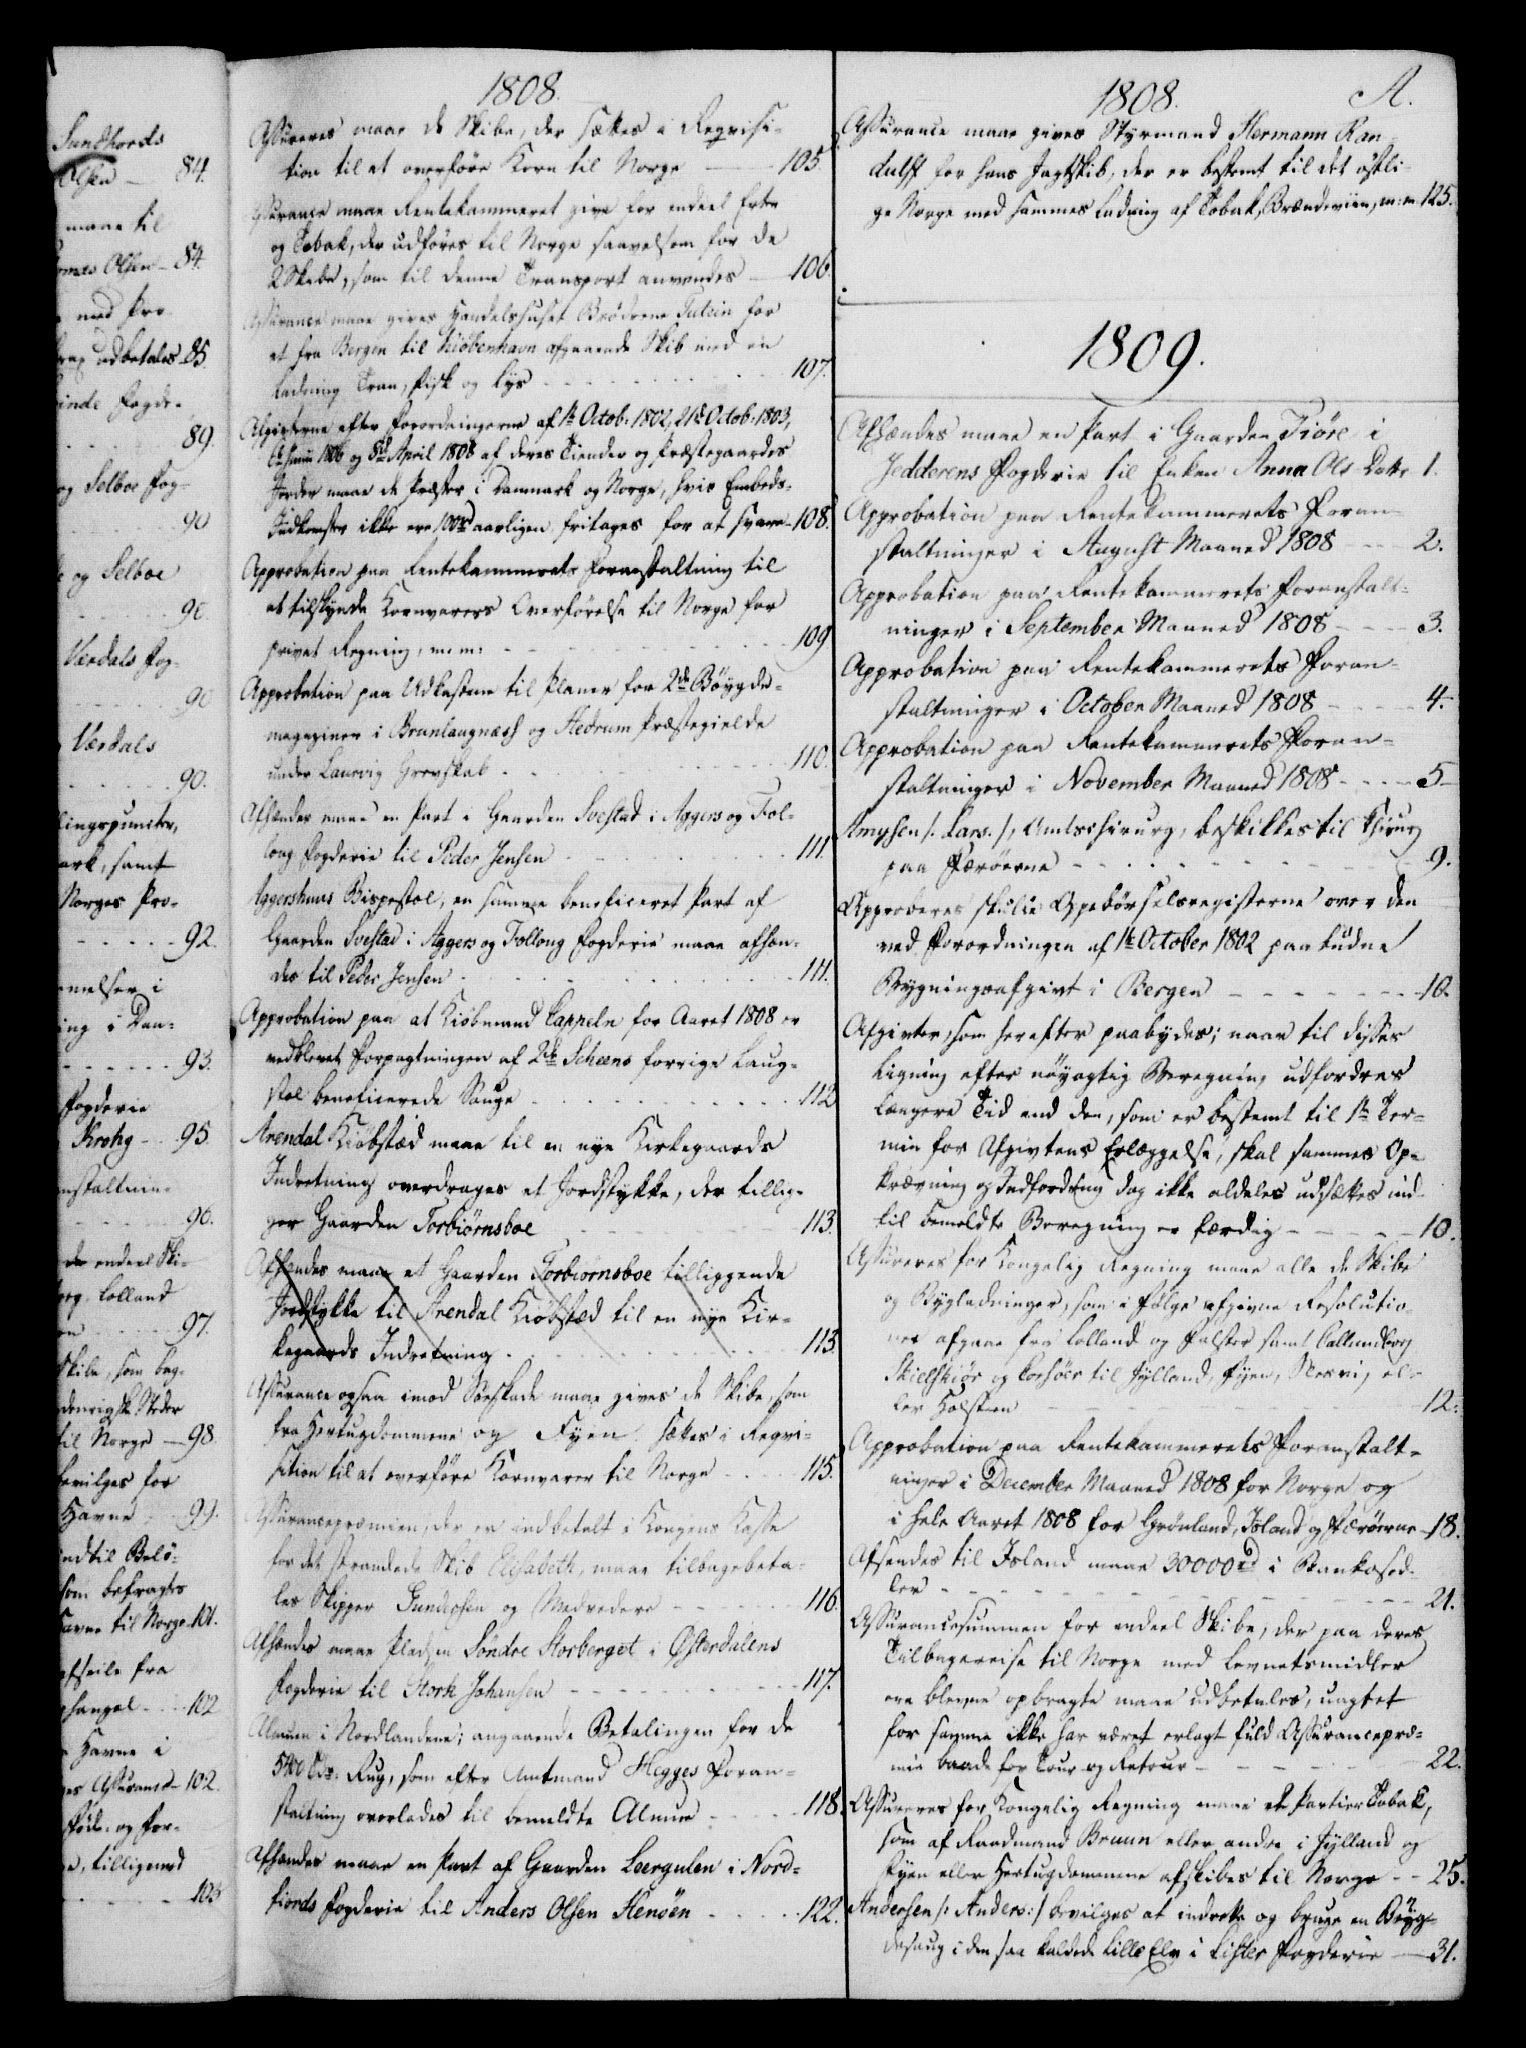 Sundhords
Olsen — 84.
maae til
Olsen — 84.
med Pro
udbetales 85.
Fogde-
89.
og Selboe Fog-
90
og Selboe
90.
Værdals Fog-
90
Værdals
90.
lingspuncter,
samt
Norges Pro-
92.
i
i Dan-
93.
Fogderie
Krohg — 95.
96.
endeel Ski-
Lolland
97.
Skibe, som
Steder
til Norge — 98.
bevilges for
Havne — 99.
indtil Belö-
som befragtes
Havne til Norge 101.
fra
102
Havne i
Assurance 102.
og For-
tilligemed
103
1808.
Assureres maae de Skibe, der sættes i Reqvisi-
tion til at overføre Korn til Norge — 105.
Assurance maae Rentekammeret give for endeel
og Tobak, der udføres til Norge saavelsom for de
2 Skibe, som til denne Transport anvendes — 106.
Assurance maae gives Handelshuset Brødrene Tutein for
et fra Bergen til Kiöbenhavn afgaaende Skib med en
Ladning Tran, Fisk og Lys - - - 107.
Afgivterne efter Forordningerne af 1te Octob. 1802, 21de Octob. 1803,
1806 og 8de April 1808 af deres Tiender og Præstegaardes
Jorder maae de Præster i Danmark og Norge, hvis Embeds-
Indkomster ikke ere 100rd aarligen fritages for at svare — 108.
Approbation paa Rentekammerets Foranstaltning til
at tilskynde Kornvarers Overførelse til Norge for
privat Regning, m.m: - - - 109
Approbation paa Udkastene til Planer for 2de Böygde-
magaziner i Brunlaugnæss og Hedrum Præstegielde
under Laurvig Grevskab - - - 110.
Afhændes maae en Part i Gaarden Svestad i Aggers og Fol-
loug Fogderie til Peder Jensen - - - 111.
Aggershuus Bispestol, en samme beneficeret Part af
Gaarden Svestad i Aggers og Follong Fogderie maae afhæn-
des til Peder Jensen - - - 111.
Approbation paa at Kiöbmand Cappeln for Aaret 1808 er
vedblevet Forpagtningen af 2de Scheens forrige Laug-
stol beneficerede Sauge - - - 112
Arendal Kiöbstæd maae til en nye Kirkegaards
Indretning overdrages et Jordstykke, der tillig-
ger Gaarden Torbiörnsboe - - - 113.
Afhændes maae et Gaarden Torbiornsboe tilliggende
Jordstykke til Arendal Kiöbstæd til en nye Kir-
kegaards Indretning - - - 113.
Assurance ogsaa imod Söeskade maae gives de Skibe, som
fra Hertugdommene og Fyen sættes i Reqvi-
sition til at overföre Kornvarer til Norge - - - 115.
Assurancepræmien, der er indbetalt i Kongens Kasse
for det strandede Skib Elisabeth, maae tilbagebeta-
les Skipper Gundersen og Medredere - - - 116.
Afhændes maae Pladsen Söndre Storberget i Österdalens
Fogderie til Stork Johansen - - - 117.
Almuen i Nordlandene; angaaende Betalingen for de
Rug, som efter Amtmand Hegges Foran-
staltning overlades til bemeldte Almue - - - 118.
Afhændes maae en Part af Gaarden Leergulen i Nord-
fiords Fogderie til Anders Olsen Henöen - - - 122.
1808. A.
Assurance maae gives Styrmand Hermann Ran-
dulff for hans Jagtskib, der er bestemt til det östli-
ge Norge med sammes Ladning af Tobak, Brændeviin, m:m: 125.
1809.
Afhændes maae en Part i Gaarden Tiöre i
Jedderens Fogderie til Enken Anna Ols Datter 1.
Approbation paa Rentekammerets Foran-
staltninger i August Maaned 1808 - - - 2.
Approbation paa Rentekammerets Foranstalt-
ninger i September Maaned 1808 - - - 3.
Approbation paa Rentekammerets Foran-
staltninger i October Maaned 1808 - - - 4.
Approbation paa Rentekammerets Foran-
staltninger i November Maaned 1808 - - - 5
Amysen /: Lars. /, Amtschirurg, beskikkes til Chirurg
paa Færöerne - - - 9.
Approberes skulle Opebørselsregisterne over den
ved Forordningen af 1te October 1802 paa budne
Bygningsafgivt i Bergen - - - 10.
Afgivter, som herefter paabydes; naar til disses
Ligning efter nöyagtig Beregning udfordres
længere Tid end den, som er bestemt til 1te Ter-
min for Afgivtens Erlæggelse, skal sammes Op-
krævning og Indfordring dog ikke aldeles udsættes ind-
til bemeldte Beregning er færdig - - - 10.
Assureres for Kongelig Regning maae alle de Skibe
og Bygladninger, som i Følge afgivne Resolutio-
ner afgaae fra Lolland og Falster samt Callundborg
Skielskiör og Corsöer til Jylland, Fyen, Slesvig el-
ler Holsteen - - - 12.
Approbation paa Rentekammerets Foranstalt-
ninger i December Maaned 1808 for Norge og
i hele Aaret 1808 for Grönland, Island og Færöerne 18.
Afsendes til Island maae 30000rd i Bankosed-
ler - - - 21.
Assurancesummen for endeel Skibe, der paa deres
Tilbagereise til Norge med Levnetsmidler
ere blevne opbragte maae udbetales, uagtet
for samme ikke har været erlagt fuld Assurancepræ-
mie baade for Tour og Retour - - - 22.
Assureres for Kongelig Regning maae et Partier Tobak,
som af Raadmand Bruun eller andre i Jylland og
Fyen eller Hertugdommene afskibes til Norge - - 25.
Andersen /: Anders: / bevilges at indrette og bruge en Bÿg-
desaug i den saa kaldede Lille Elv i Lister Fogderie — 31.